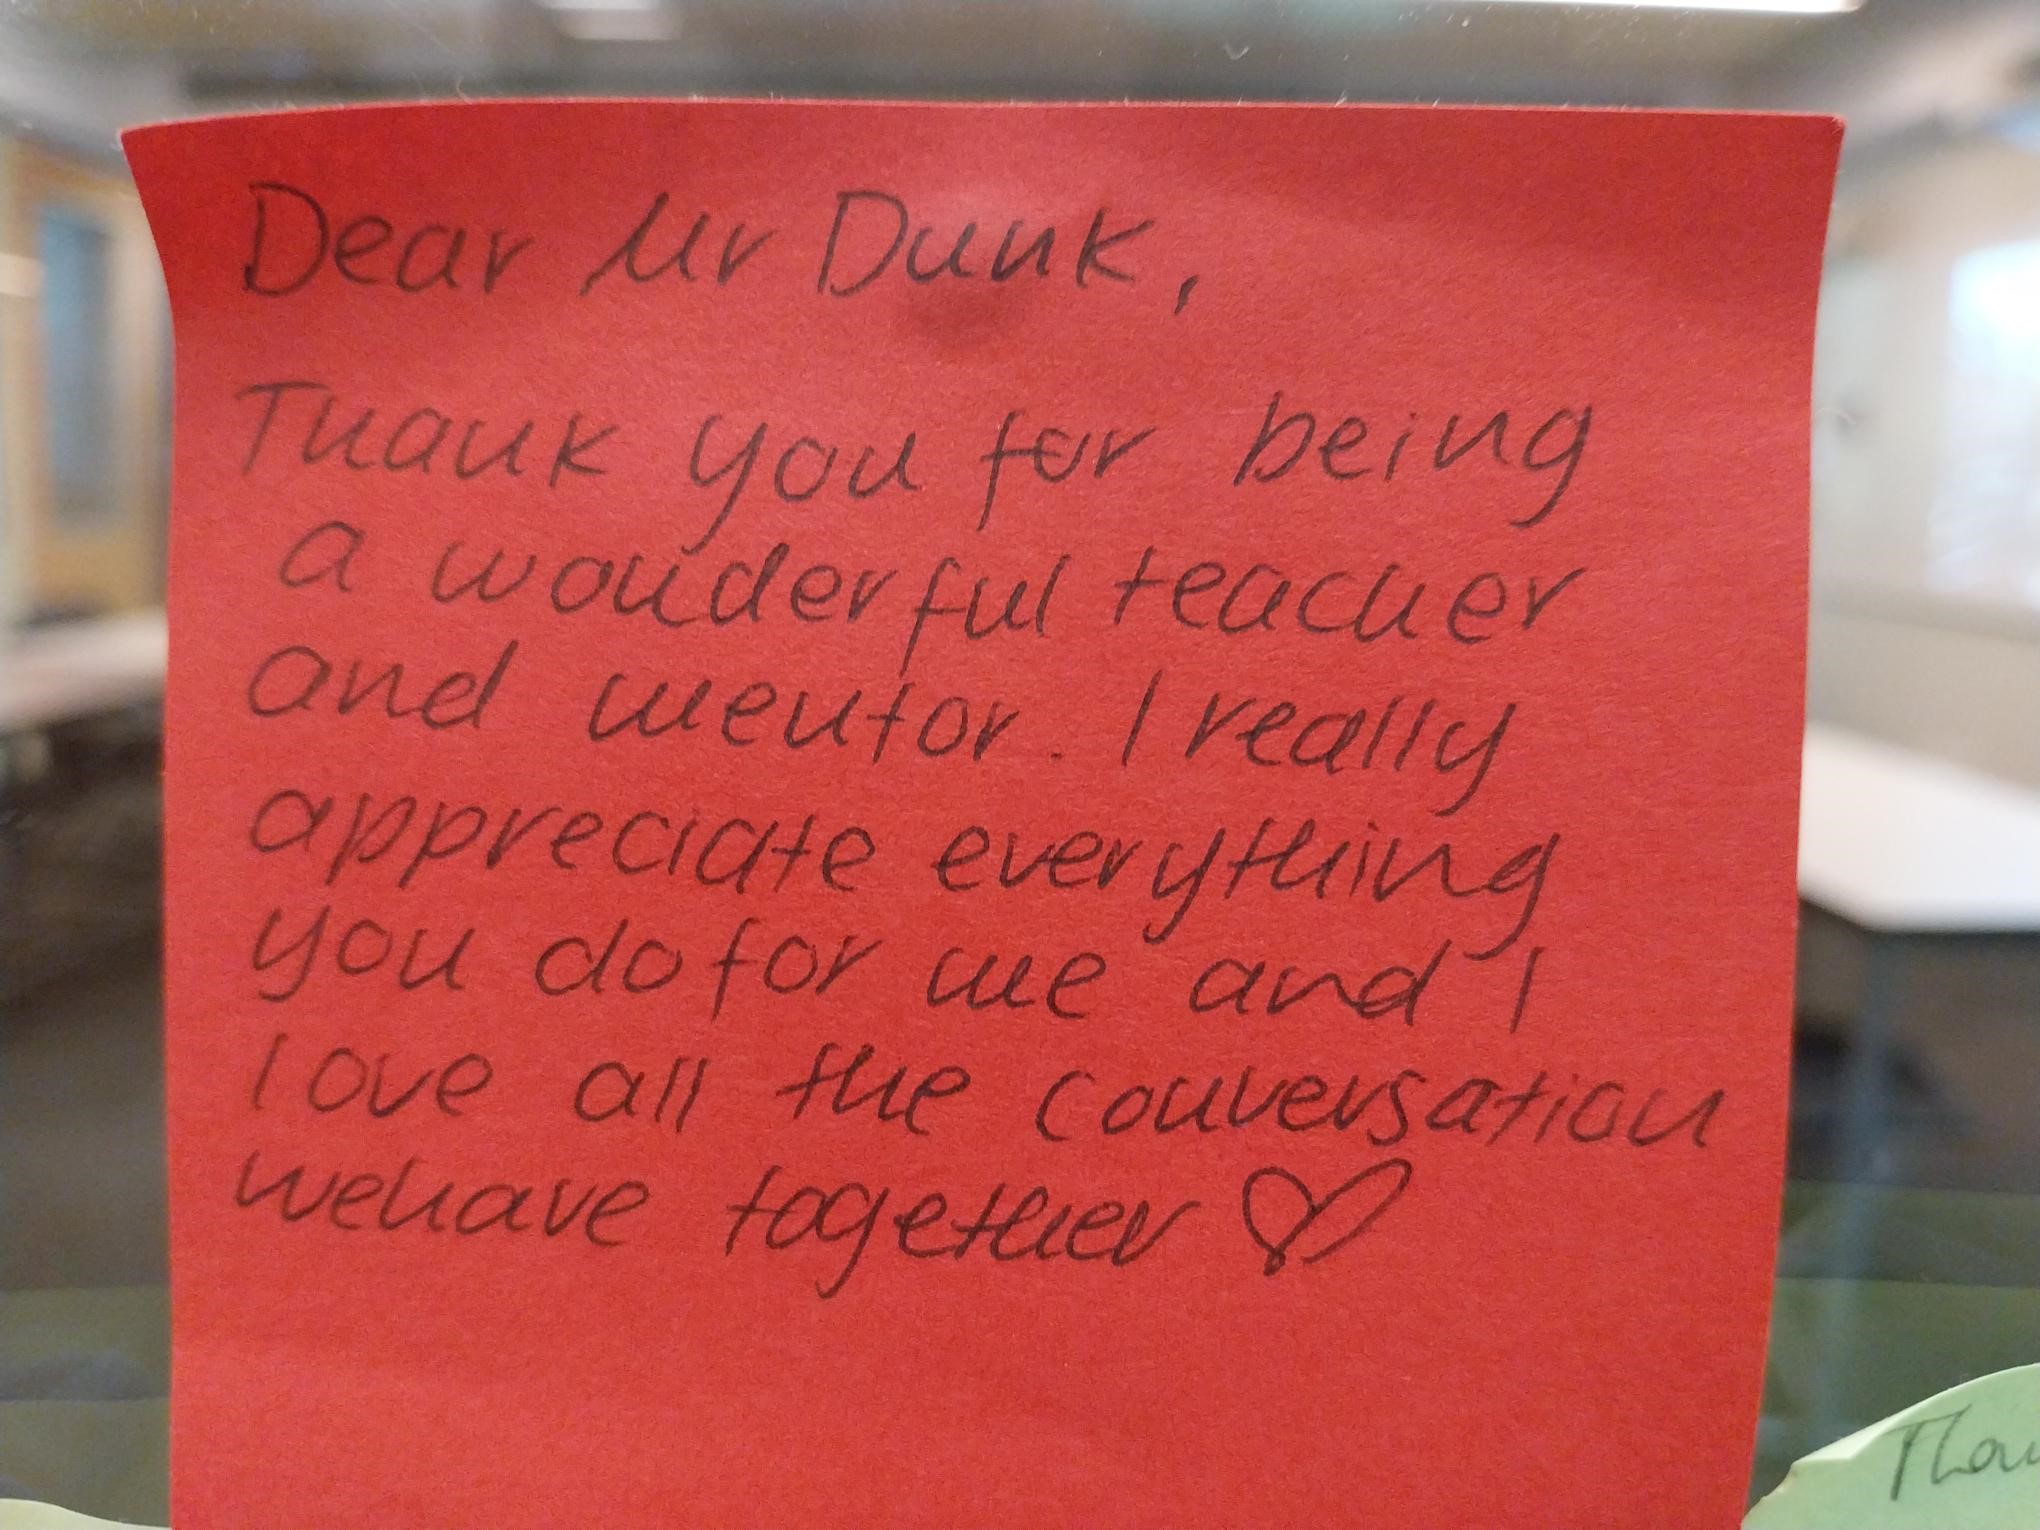 Dear Mr Dunk,
Thank you for being
a wonderful teacher
and mentor. I really
appreciate everything
you do for me and I
love all the conversation
we have together ♡